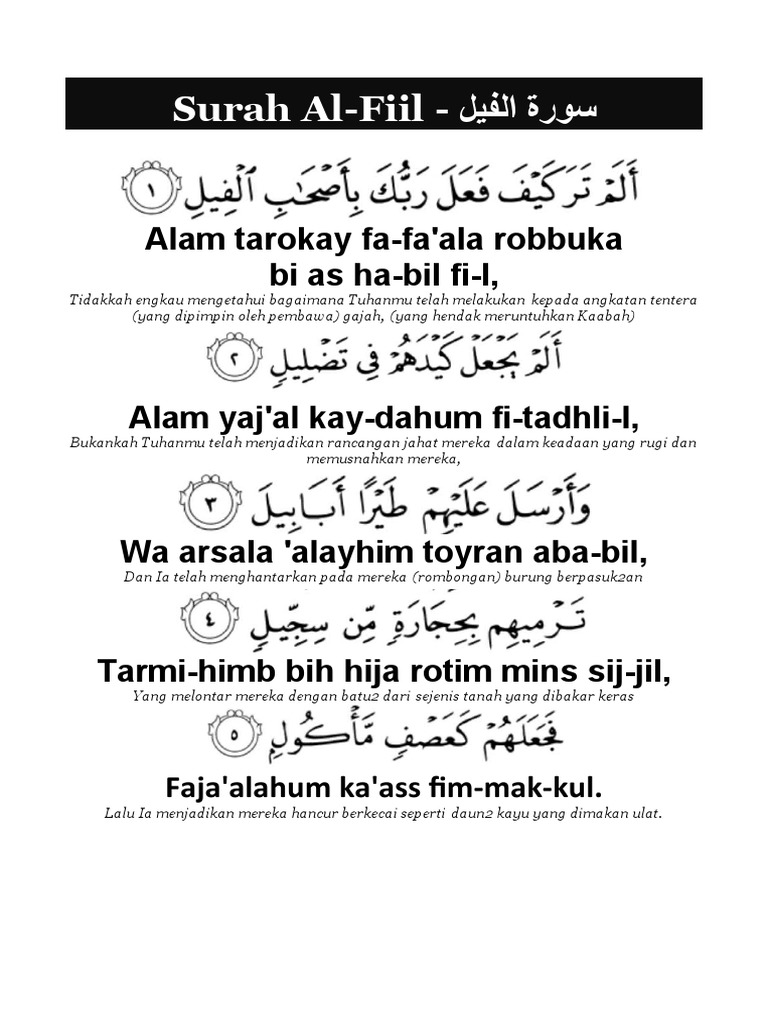 Surah Al-Fiil - سورة الفيل
أَلَمْ تَرَ كَيْفَ فَعَلَ رَبُّكَ بِأَصْحَٰبِ ٱلْفِيلِ ١
Alam tarokay fa-fa'ala robbuka
bi as ha-bil fi-l,
Tidakkah engkau mengetahui bagaimana Tuhanmu telah melakukan kepada angkatan tentera
(yang dipimpin oleh pembawa) gajah, (yang hendak meruntuhkan Kaabah)
أَلَمْ يَجْعَلْ كَيْدَهُمْ فِي تَضْلِيلٍ ٢
Alam yaj'al kay-dahum fi-tadhli-l,
Bukankah Tuhanmu telah menjadikan rancangan jahat mereka dalam keadaan yang rugi dan
memusnahkan mereka,
وَأَرْسَلَ عَلَيْهِمْ طَيْرًا أَبَابِيلَ ٣
Wa arsala 'alayhim toyran aba-bil,
Dan Ia telah menghantarkan pada mereka (rombongan) burung berpasuk2an
تَرْمِيهِم بِحِجَارَةٍ مِّن سِجِّيلٍ ٤
Tarmi-himb bih hija rotim mins sij-jil,
Yang melontar mereka dengan batu2 dari sejenis tanah yang dibakar keras
فَجَعَلَهُمْ كَعَصْفٍ مَّأْكُولٍ ٥
Faja'alahum ka'ass fim-mak-kul.
Lalu Ia menjadikan mereka hancur berkecai seperti daun2 kayu yang dimakan ulat.